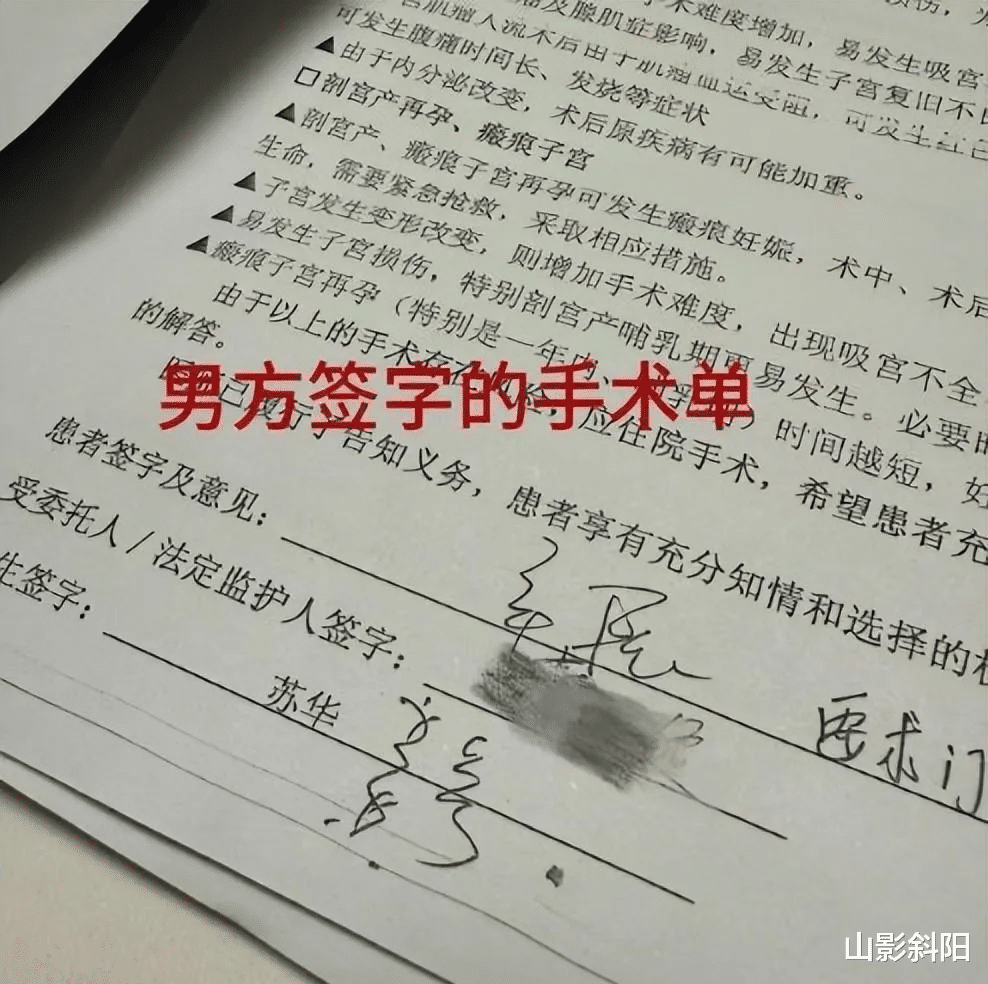 手术难度增加，易发生吸宫
及腺肌症影响，易发生子宫复旧不
宫肌瘤人流术后由于肌瘤血运受阻，可发生红色
可发生腹痛时间长、发烧等症状
▲由于内分泌改变，术后原疾病有可能加重。
□剖宫产再孕、瘢痕子宫
▲剖宫产、瘢痕子宫再孕可发生瘢痕妊娠，术中、术后
生命，需要紧急抢救，采取相应措施。
▲子宫发生变形改变，则增加手术难度，出现吸宫不全
▲易发生子宫损伤，特别剖宫产哺乳期更易发生。必要时
▲瘢痕子宫再孕（特别是一年内、）时间越短，好
由于以上的手术存在风险，应住院手术，希望患者充
的解答。
男方签字的手术单
医师已履行了告知义务，患者享有充分知情和选择的权
患者签字及意见：
要求门
受委托人/法定监护人签字：
生签字：
苏华
山影斜阳